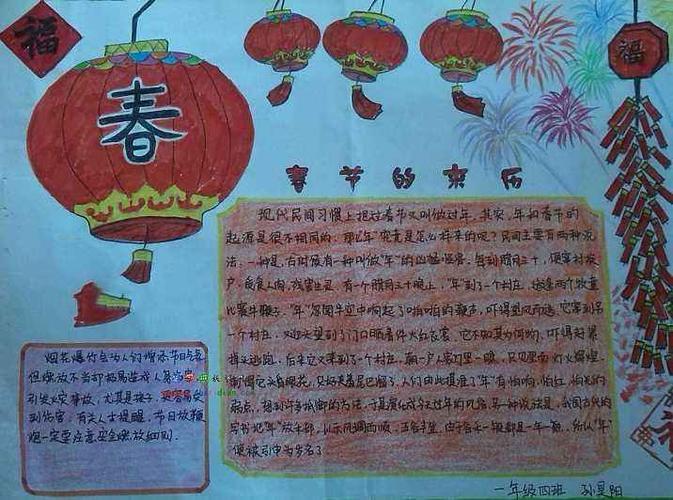 福
春
福
春节的来历
现代民间习惯上把过春节又叫做过年。其实，年和春节的
起源是很不相同的。那么“年”究竟是怎么样来的呢？民间主要有两种说
法：一种是，古时候有一种叫做“年”的凶猛怪兽，每到腊月三十，便窜村挨
户，觅食人肉，残害生灵。有一个腊月三十晚上，“年”到了一个村庄，适逢两个牧童
比赛牛鞭子。“年”忽闻半空中响起了啪啪的鞭声，吓得望风而逃。它窜到另
一个村庄，又迎头望到了门口晒着件大红衣裳，它不知其为何物，吓得赶紧
掉头逃跑。后来它又来到了一个村庄，朝一户人家门里一瞧，只见里面灯火辉煌，
刺得它头昏眼花，只好夹着尾巴溜了。人们由此摸准了“年”有怕响，怕红，怕光的
弱点，想到许多抵御的方法，于是演化成今天过年的风俗。另一种说法是，我国古代的
字书把“年”放禾部，以示风调雨顺，五谷丰登。由于谷禾一般都是一年一熟。所以“年”
便被引申为岁名了
烟花爆竹会为人们增添节日气氛
但燃放不当却极易造成人身伤害，
引发火灾事故，尤其是孩子，更容易受
到伤害。有关人士提醒，节日放鞭
炮一定要注意安全燃放细则。
一年级四班 孙昊阳